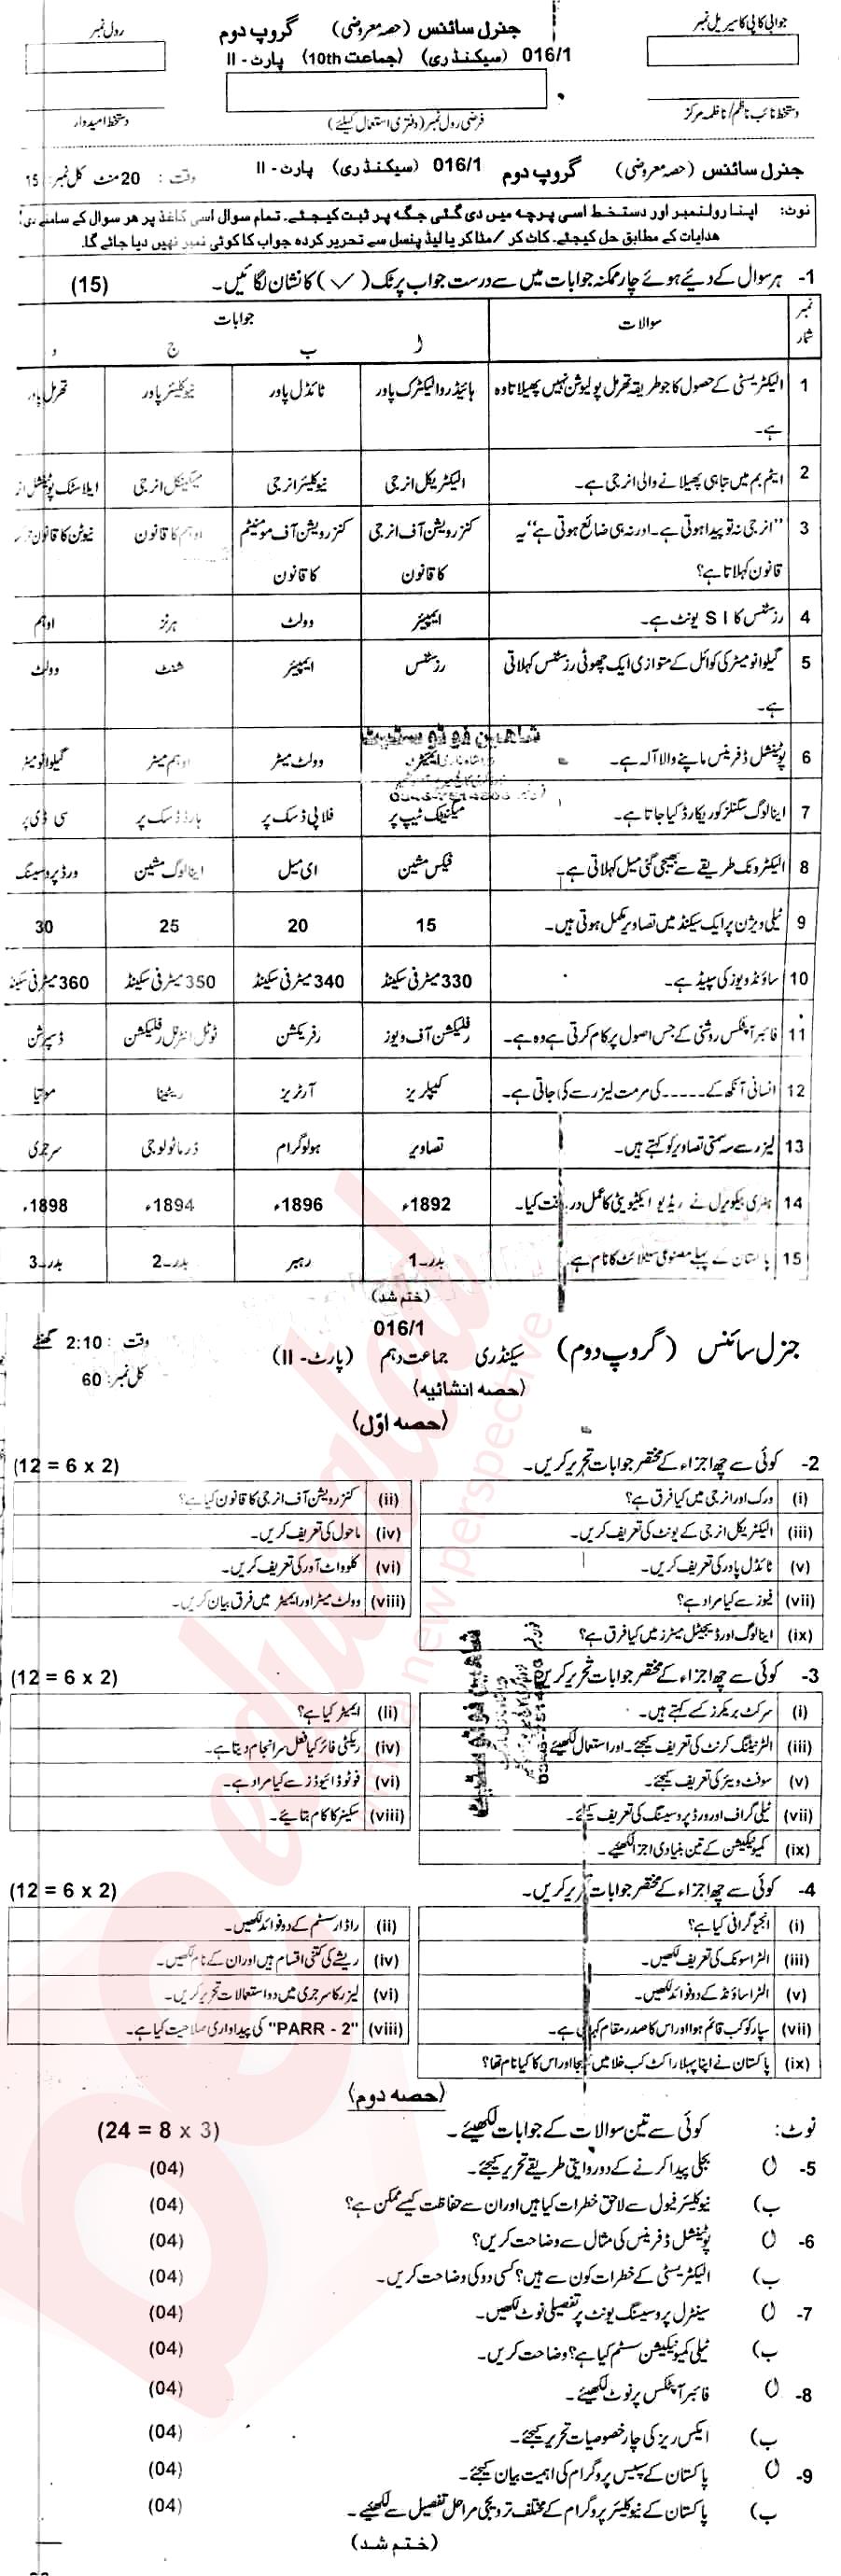 رول نمبر
جنرل سائنس (حصہ معروضی) گروپ دوم
جوابی کاپی کا سیریل نمبر
016/1 (سیکنڈری) (جماعت 10th) پارٹ - II
دستخط امیدوار
فرضی رول نمبر (دفتری استعمال کیلئے)
دستخط نائب ناظم/ناظمہ مرکز
جنرل سائنس (حصہ معروضی) گروپ دوم 016/1 (سیکنڈری) پارٹ - II وقت : 20 منٹ کل نمبر: 15
نوٹ: اپنا رولنمبر اور دستخط اسی پرچہ میں دی گئی جگہ پر ثبت کیجئے۔ تمام سوال اسی کاغذ پر ہر سوال کے سامنے دی
ہدایات کے مطابق حل کیجئے۔ کاٹ کر/مٹا کر یا لیڈ پنسل سے تحریر کردہ جواب کا کوئی نمبر نہیں دیا جائے گا۔
1- ہر سوال کے دیئے ہوئے چار ممکنہ جوابات میں سے درست جواب پر ٹک (✓) کا نشان لگائیں۔ (15)
نمبر شمار سوالات جوابات
ا ب ج د
1 الیکٹریسٹی کے حصول کا جو طریقہ تھرمل پولیوشن نہیں پھیلاتا وہ ہے۔ ہائیڈرو الیکٹرک پاور ٹائڈل پاور نیوکلیئر پاور تھرمل پاور
2 ایٹم بم میں تباہی پھیلانے والی انرجی ہے۔ الیکٹریکل انرجی نیوکلیئر انرجی میکینکل انرجی ایلاسٹک پوٹینشل
3 "انرجی نہ تو پیدا ہوتی ہے۔ اور نہ ہی ضائع ہوتی ہے" یہ قانون کہلاتا ہے؟ کنزرویشن آف انرجی کا قانون کنزرویشن آف مومینٹم کا قانون اوہم کا قانون نیوٹن کا قانون
4 رزسٹنس کا SI یونٹ ہے۔ ایمپیئر وولٹ ہرٹز اوہم
5 گیلوانومیٹر کی کوائل کے متوازی ایک چھوٹی رزسٹنس کہلاتی ہے۔ رزسٹنس ایمپیئر شنٹ وولٹ
6 پوٹینشل ڈفرینس ماپنے والا آلہ ہے۔ ایمیٹر وولٹ میٹر اوہم میٹر گیلوانومیٹر
7 اینالوگ سگنلز کو ریکارڈ کیا جاتا ہے۔ میگنیٹک ٹیپ پر فلاپی ڈسک پر ہارڈ ڈسک پر سی ڈی پر
8 الیکٹرونک طریقے سے بھیجی گئی میل کہلاتی ہے۔ فیکس مشین ای میل اینالوگ مشین ورڈ پروسیسنگ
9 ٹیلی ویژن پر ایک سیکنڈ میں تصاویر مکمل ہوتی ہیں۔ 15 20 25 30
10 ساؤنڈ ویوز کی سپیڈ ہے۔ 330 میٹر فی سیکنڈ 340 میٹر فی سیکنڈ 350 میٹر فی سیکنڈ 360 میٹر فی سیکنڈ
11 فائبر آپٹکس روشنی کے جس اصول پر کام کرتی ہے وہ ہے۔ رفلیکشن آف ویوز رفریکشن ٹوٹل انٹرنل رفلیکشن ڈسپرشن
12 انسانی آنکھ کے ----- کی مرمت لیزر سے کی جاتی ہے۔ کیپلریز آرٹریز ریٹینا موتیا
13 لیزر سے سہ سمتی تصاویر کو کہتے ہیں۔ تصاویر ہولوگرام ڈرماٹولوجی سرجری
14 ہنری بیکویرل نے ریڈیو ایکٹیویٹی کا عمل دریافت کیا۔ 1892ء 1896ء 1894ء 1898ء
15 پاکستان کے پہلے مصنوعی سیٹلائٹ کا نام ہے۔ بدر-1 رہبر بدر-2 بدر-3
(ختم شد)
016/1
جنرل سائنس (گروپ دوم) سیکنڈری جماعت دہم (پارٹ-II) وقت : 2:10 گھنٹے
(حصہ انشائیہ) کل نمبر: 60
(حصہ اوّل)
2- کوئی سے چھ اجزاء کے مختصر جوابات تحریر کریں۔ (12 = 6 x 2)
(i) ورک اور انرجی میں کیا فرق ہے؟ (ii) کنزرویشن آف انرجی کا قانون کیا ہے؟
(iii) الیکٹریکل انرجی کے یونٹ کی تعریف کریں۔ (iv) ماحول کی تعریف کریں۔
(v) ٹائڈل پاور کی تعریف کریں۔ (vi) کلو واٹ آور کی تعریف کریں۔
(vii) فیوز سے کیا مراد ہے؟ (viii) وولٹ میٹر اور ایمیٹر میں فرق بیان کریں۔
(ix) اینالوگ اور ڈیجیٹل میٹرز میں کیا فرق ہے؟
3- کوئی سے چھ اجزاء کے مختصر جوابات تحریر کریں۔ (12 = 6 x 2)
(i) سرکٹ بریکرز کسے کہتے ہیں۔ (ii) ایمیٹر کیا ہے؟
(iii) الٹرنیٹنگ کرنٹ کی تعریف کیجئے۔ اور استعمال لکھیئے (iv) ریکٹی فائر کیا فعل سرانجام دیتا ہے۔
(v) سوفٹ ویئر کی تعریف کیجئے۔ (vi) فوٹو ڈائیوڈز سے کیا مراد ہے۔
(vii) ٹیلی گراف اور ورڈ پروسیسنگ کی تعریف کیجئے۔ (viii) سکینر کا کام بتائیے۔
(ix) کمیونیکیشن کے تین بنیادی اجزا لکھیئے۔
4- کوئی سے چھ اجزاء کے مختصر جوابات تحریر کریں۔ (12 = 6 x 2)
(i) انجیوگرافی کیا ہے؟ (ii) راڈار سسٹم کے دو فوائد لکھیں۔
(iii) الٹراسونک کی تعریف لکھیں۔ (iv) ریشے کی کتنی اقسام ہیں اور ان کے نام لکھیں۔
(v) الٹراساؤنڈ کے دو فوائد لکھیں۔ (vi) لیزر کا سرجری میں دو استعمالات تحریر کریں۔
(vii) سپارکو کب قائم ہوا اور اس کا صدر مقام کہاں ہے۔ (viii) "PARR - 2" کی پیداواری صلاحیت کیا ہے۔
(ix) پاکستان نے اپنا پہلا راکٹ کب خلا میں بھیجا اور اس کا کیا نام تھا؟
(حصہ دوم)
نوٹ: کوئی سے تین سوالات کے جوابات لکھیئے۔ (24 = 8 x 3)
5- ا) بجلی پیدا کرنے کے دو روایتی طریقے تحریر کیجئے۔ (04)
ب) نیوکلیئر فیول سے لاحق خطرات کیا ہیں اور ان سے حفاظت کیسے ممکن ہے؟ (04)
6- ا) پوٹینشل ڈفرینس کی مثال سے وضاحت کریں؟ (04)
ب) الیکٹریسٹی کے خطرات کون سے ہیں؟ کسی دو کی وضاحت کریں۔ (04)
7- ا) سینٹرل پروسیسنگ یونٹ پر تفصیلی نوٹ لکھیں۔ (04)
ب) ٹیلی کمیونیکیشن سسٹم کیا ہے؟ وضاحت کریں۔ (04)
8- ا) فائبر آپٹکس پر نوٹ لکھیئے۔ (04)
ب) ایکس ریز کی چار خصوصیات تحریر کیجئے۔ (04)
9- ا) پاکستان کے سپیس پروگرام کی اہمیت بیان کیجئے۔ (04)
ب) پاکستان کے نیوکلیئر پروگرام کے مختلف ترویجی مراحل تفصیل سے لکھیئے۔ (04)
(ختم شد)